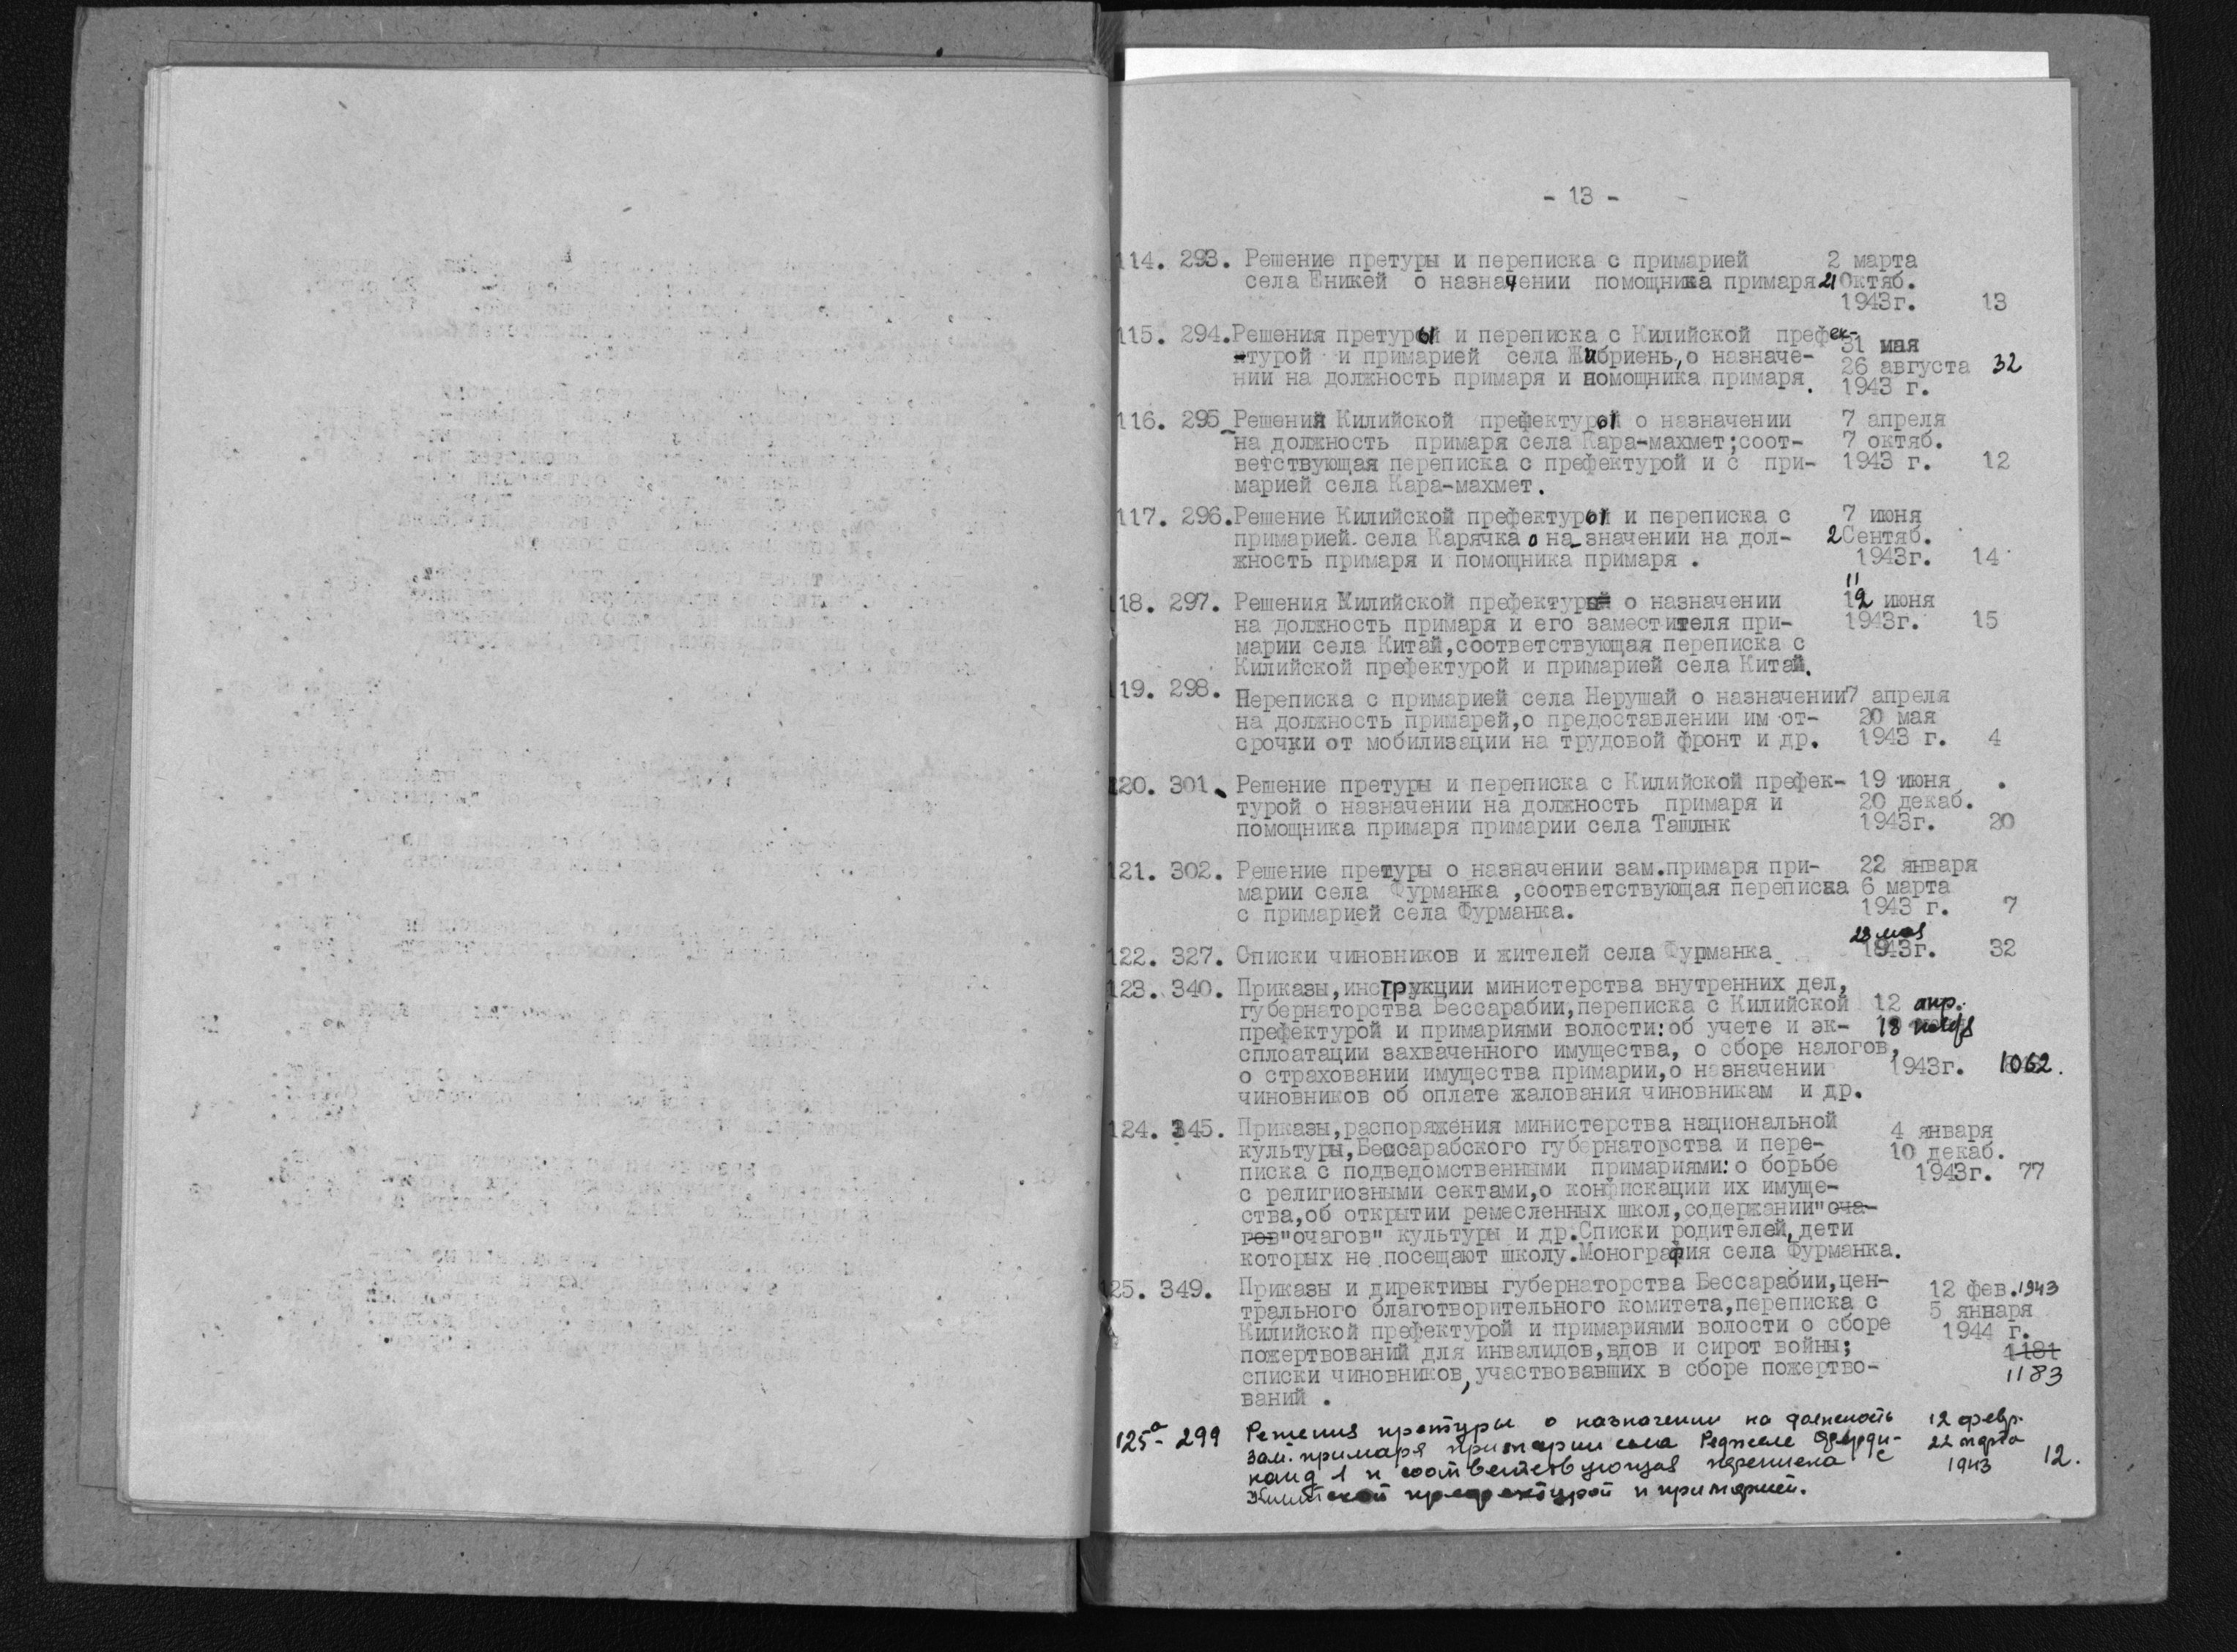 - 13 -
114. 293. Решение претуры и переписка с примарией 2 марта
села Еникей о назначении помощника примаря 21 Октяб.
1943г. 13
115. 294. Решения претуры и переписка с Килийской префек- 31 мая
турой и примарией села Жибриень, о назначе- 26 августа 32
нии на должность примаря и помощника примаря. 1943 г.
116. 295 Решения Килийской префектуры о назначении 7 апреля
на должность примаря села Кара-махмет; соот- 7 октяб.
ветствующая переписка с префектурой и с при- 1943 г. 12
марией села Кара-махмет.
117. 296. Решение Килийской префектуры и переписка с 7 июня
примарией села Карячка о назначении на дол- 2 Сентяб.
жность примаря и помощника примаря . 1943г. 14
11
118. 297. Решения Килийской префектуры о назначении 12 июня
на должность примаря и его заместителя при- 1943г. 15
марии села Китай, соответствующая переписка с
Килийской префектурой и примарией села Китай.
119. 298. Переписка с примарией села Нерушай о назначении 7 апреля
на должность примарей, о предоставлении им от- 20 мая
срочки от мобилизации на трудовой фронт и др. 1943 г. 4
120. 301. Решение претуры и переписка с Килийской префек- 19 июня
турой о назначении на должность примаря и 20 декаб.
помощника примаря примарии села Ташлык 1943г. 20
121. 302. Решение претуры о назначении зам. примаря при- 22 января
марии села Фурманка , соответствующая переписка 6 марта
с примарией села Фурманка. 1943 г. 7
28 мая
122. 327. Списки чиновников и жителей села Фурманка 1943г. 32
123. 340. Приказы, инструкции министерства внутренних дел,
губернаторства Бессарабии, переписка с Килийской 12 апр.
префектурой и примариями волости: об учете и эк- 18 ноября
сплоатации захваченного имущества, о сборе налогов,
о страховании имущества примарии, о назначении 1943г. 1062.
чиновников об оплате жалования чиновникам и др.
124. 345. Приказы, распоряжения министерства национальной 4 января
культуры, Бессарабского губернаторства и пере- 10 декаб.
писка с подведомственными примариями: о борьбе 1943г. 77
с религиозными сектами, о конфискации их имуще-
ства, об открытии ремесленных школ, содержании "оча-
гов "очагов" культуры и др. Списки родителей, дети
которых не посещают школу. Монография села Фурманка.
125. 349. Приказы и директивы губернаторства Бессарабии, цен- 12 фев. 1943
трального благотворительного комитета, переписка с 5 января
Килийской префектурой и примариями волости о сборе 1944 г.
пожертвований для инвалидов, вдов и сирот войны; 1181
списки чиновников, участвовавших в сборе пожертво- 1183
ваний .
125а- 299 Решения претуры о назначении на должность 12 февр.
зам. примаря примарии села 22 марта
и соответствующая переписка с 1943 12.
Килийской префектурой и примарией.